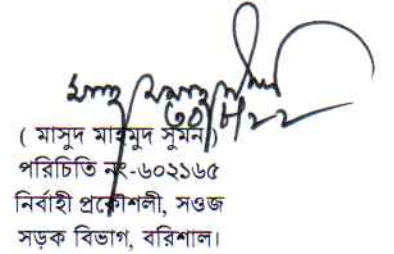 ৩০/৮/২২
( মাসুদ মাহমুদ সুমন )
পরিচিতি নং-৬০২১৬৫
নির্বাহী প্রকৌশলী, সওজ
সড়ক বিভাগ, বরিশাল।